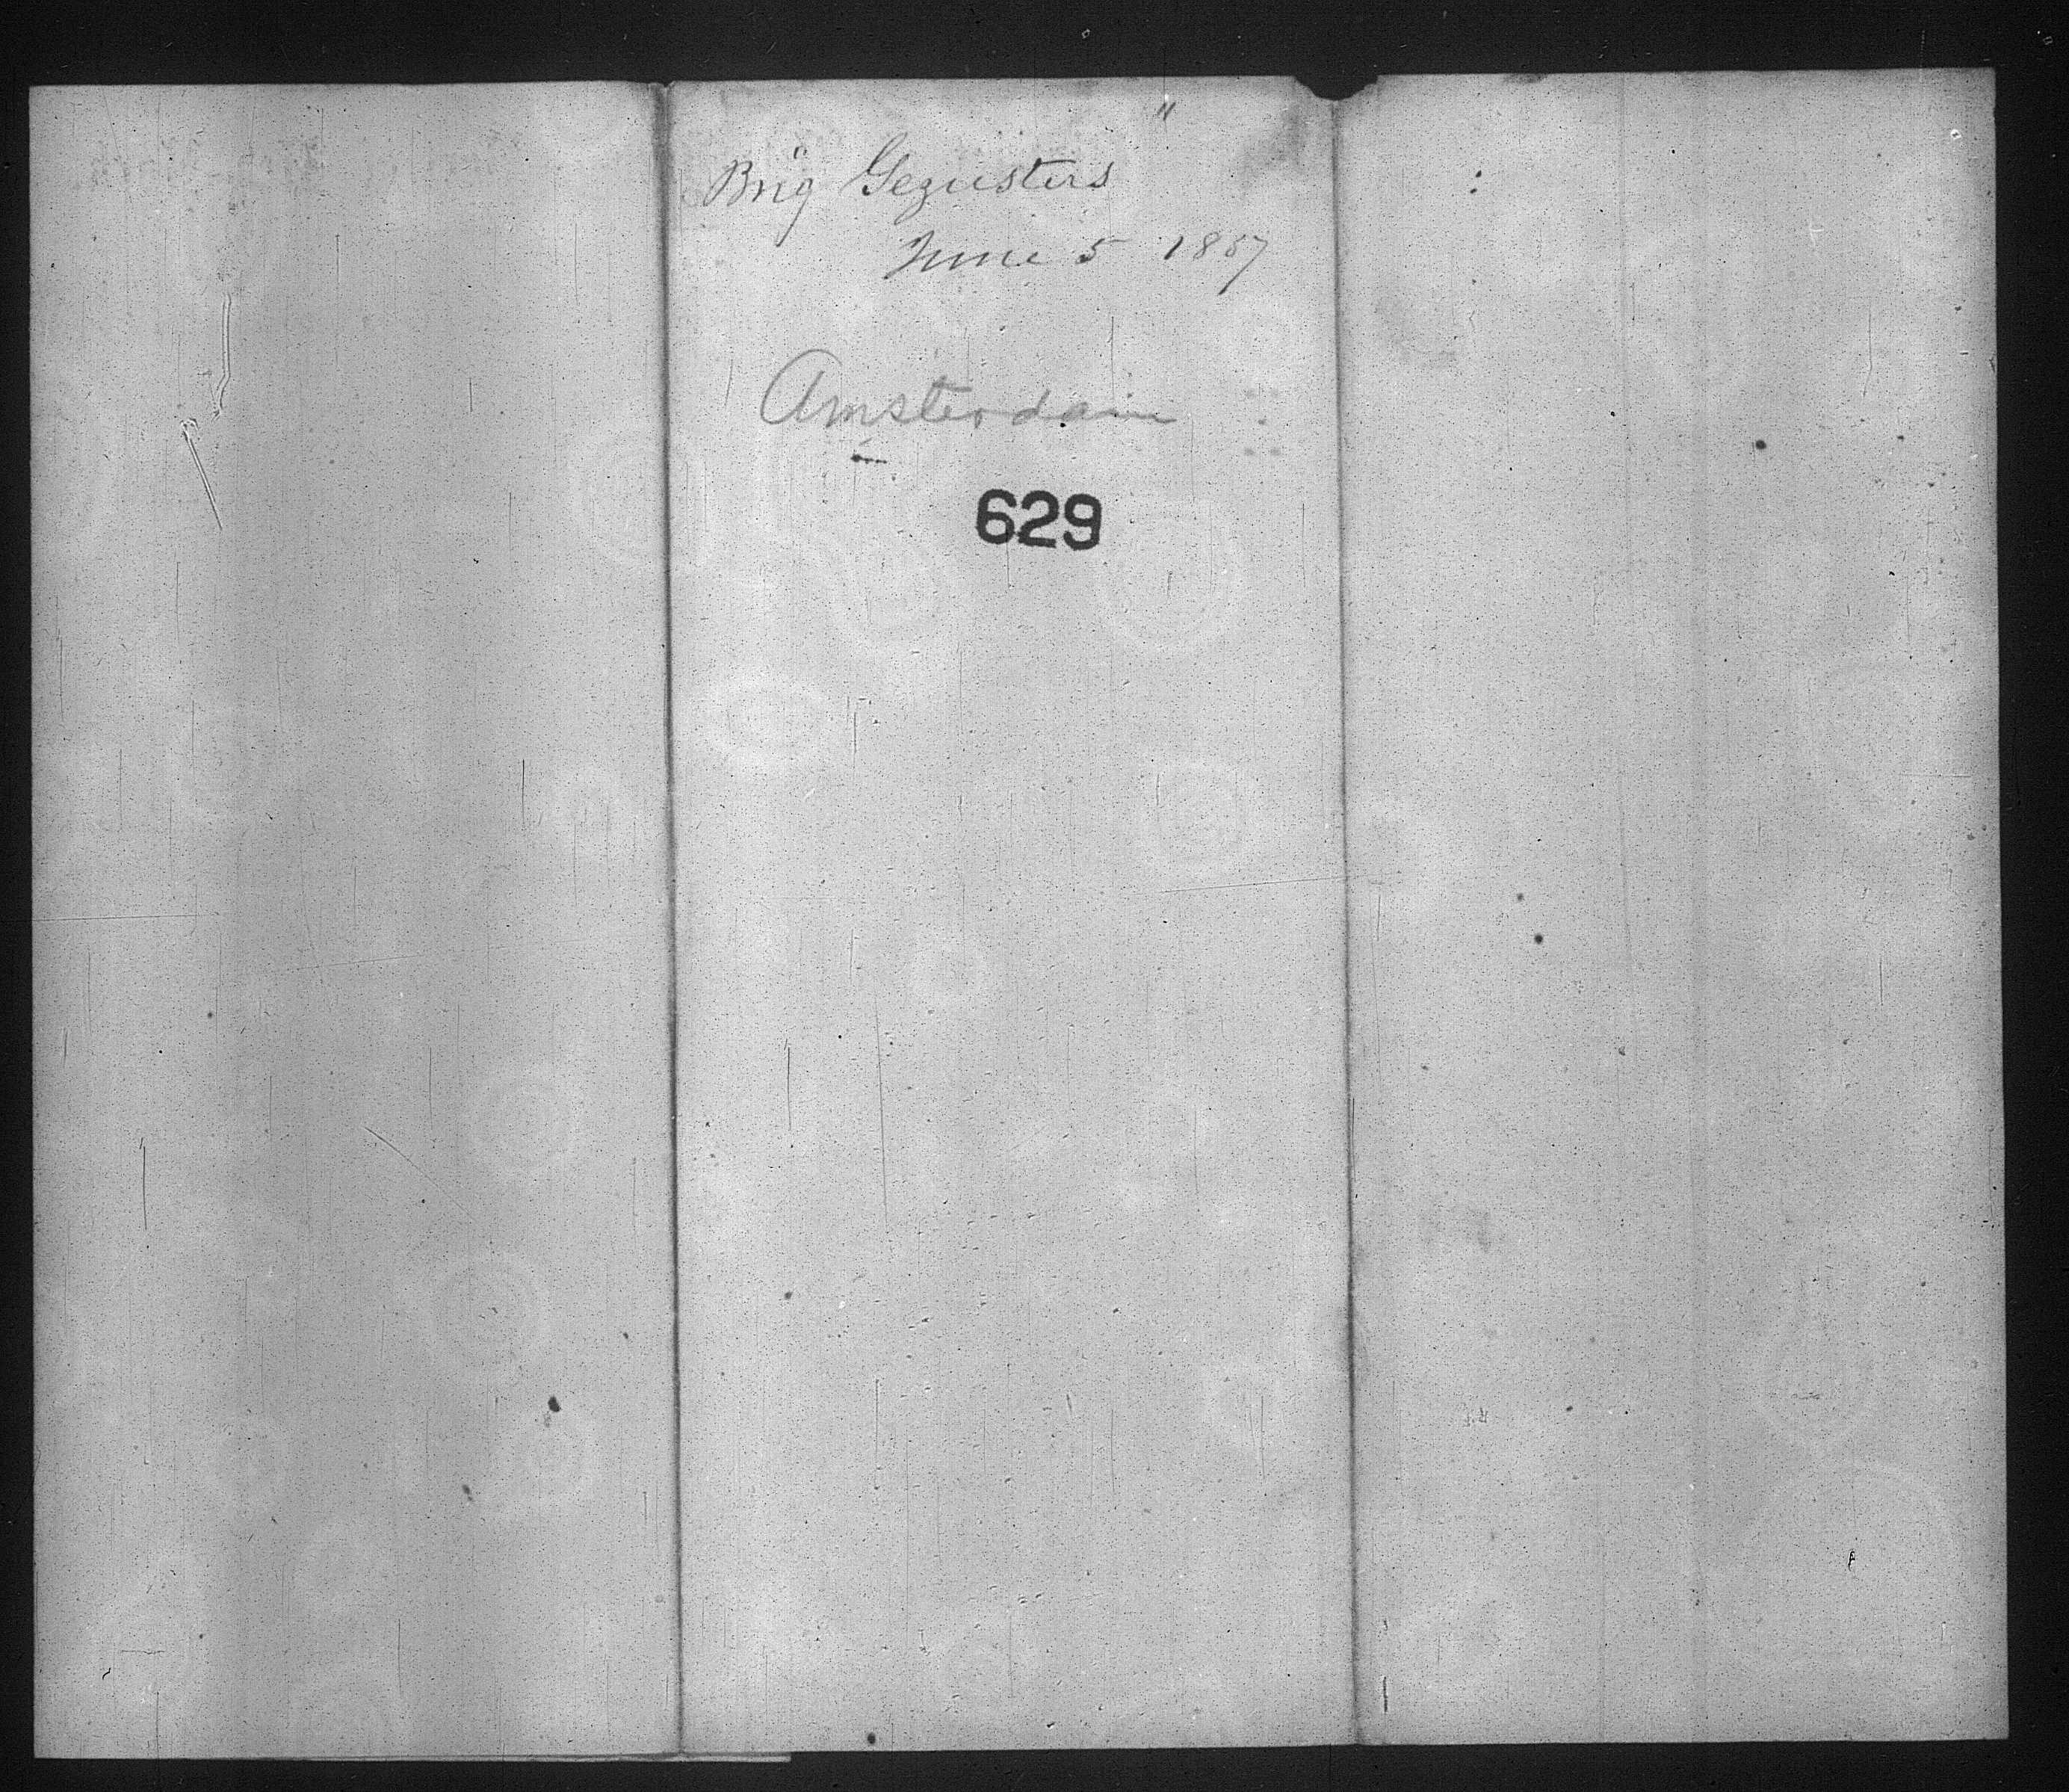 Brig "Gezusters"
June 5 1857
Amsterdam
629